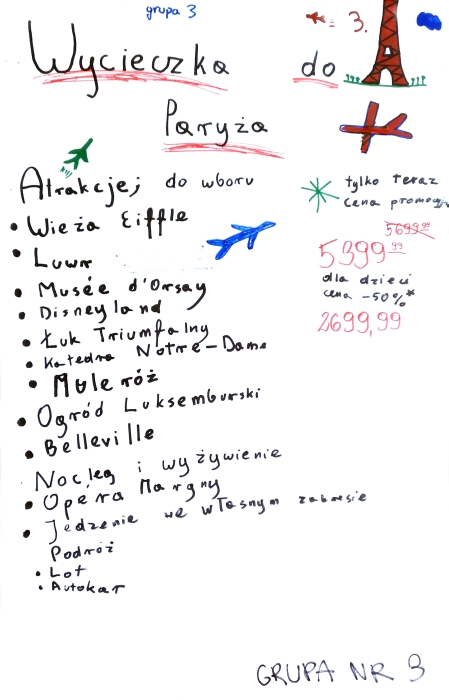 grupa 3
= 3.
Wycieczka do
Paryża
Atrakcjej do wboru
• Wieża Eiffle
• Luwr
• Musée d'Orsay
• Disneyland
• Łuk Triumfalny
• Katedra Notre-Dame
• Mule róż
• Ogród Luksemburski
• Belleville
Nocleg i wyżywienie
• Opéra Margny
• Jedzenie we własnym zakresie
Podróż
• Lot
• Autokar
tylko teraz
cena promocyj
5699,99
5399,99
dla dzieci
cena -50%*
2699,99
GRUPA NR 3